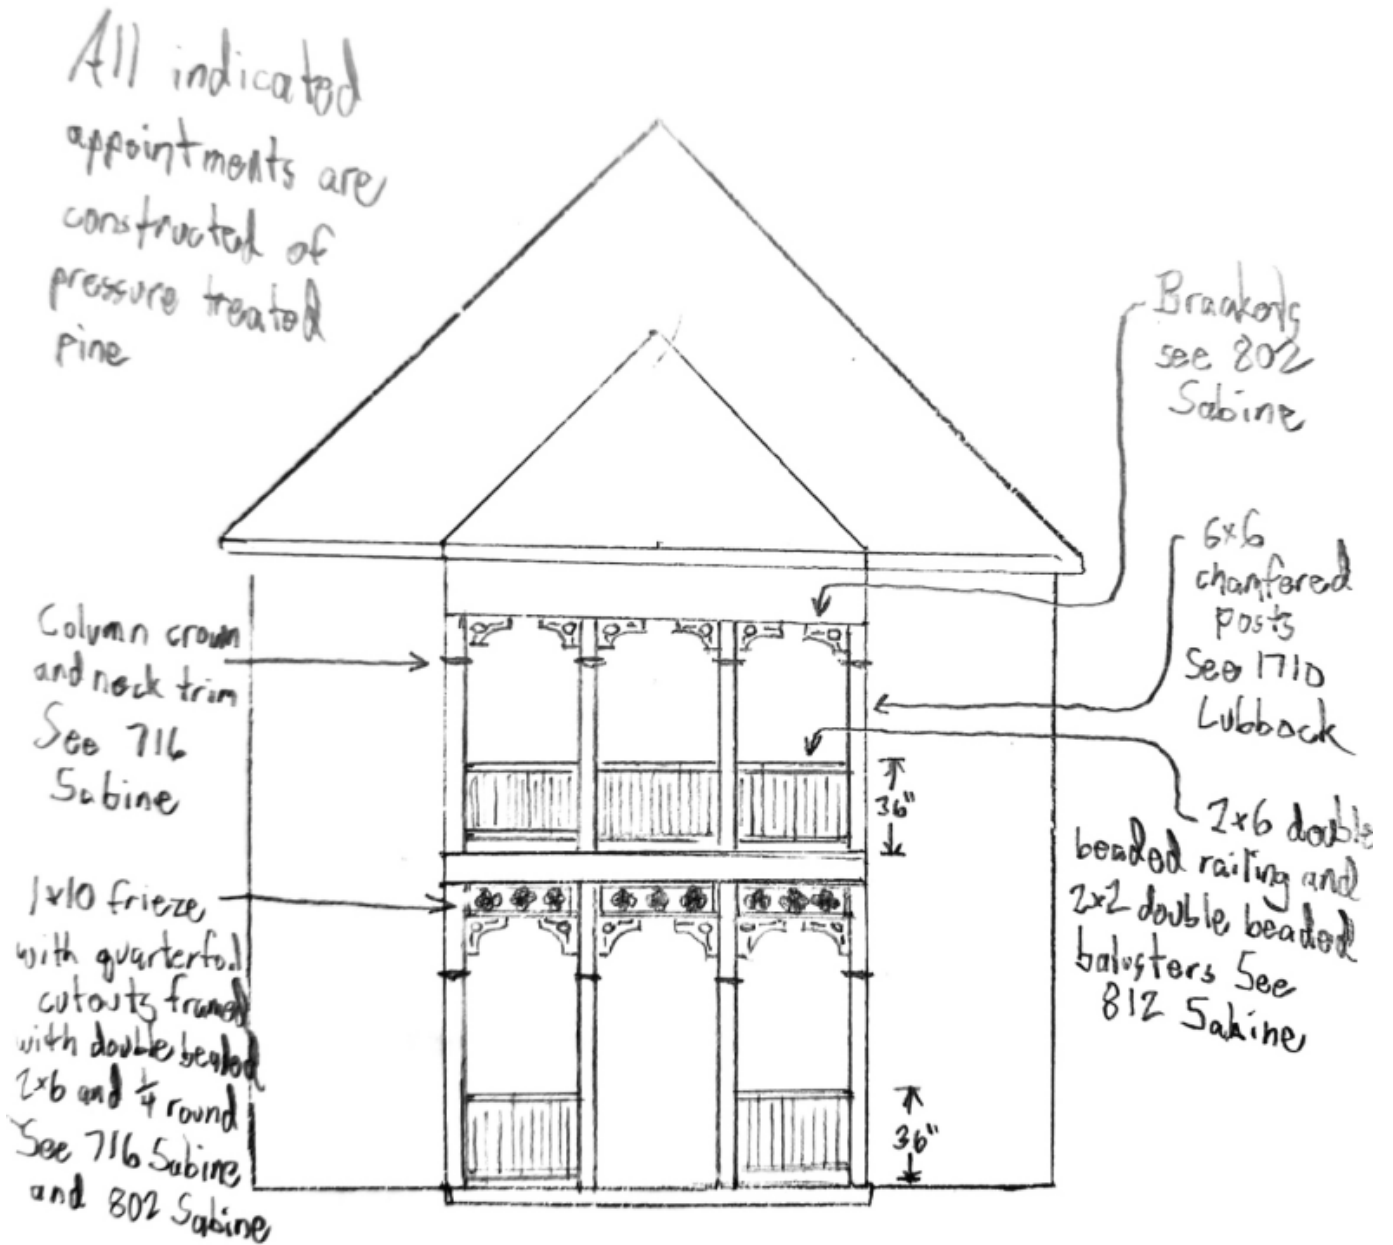 All indicated
appointments are
constructed of
pressure treated
pine
Brackets
see 802
Sabine
6x6
chamfered
posts
See 1710
Lubbock
Column crown
and neck trim
See 716
Sabine
36"
2x6 double
beaded railing and
2x2 double beaded
balusters See
812 Sabine
1x10 frieze
with quarterfoil
cutouts framed
with double beaded
2x6 and 1/4 round
See 716 Sabine
and 802 Sabine
36"